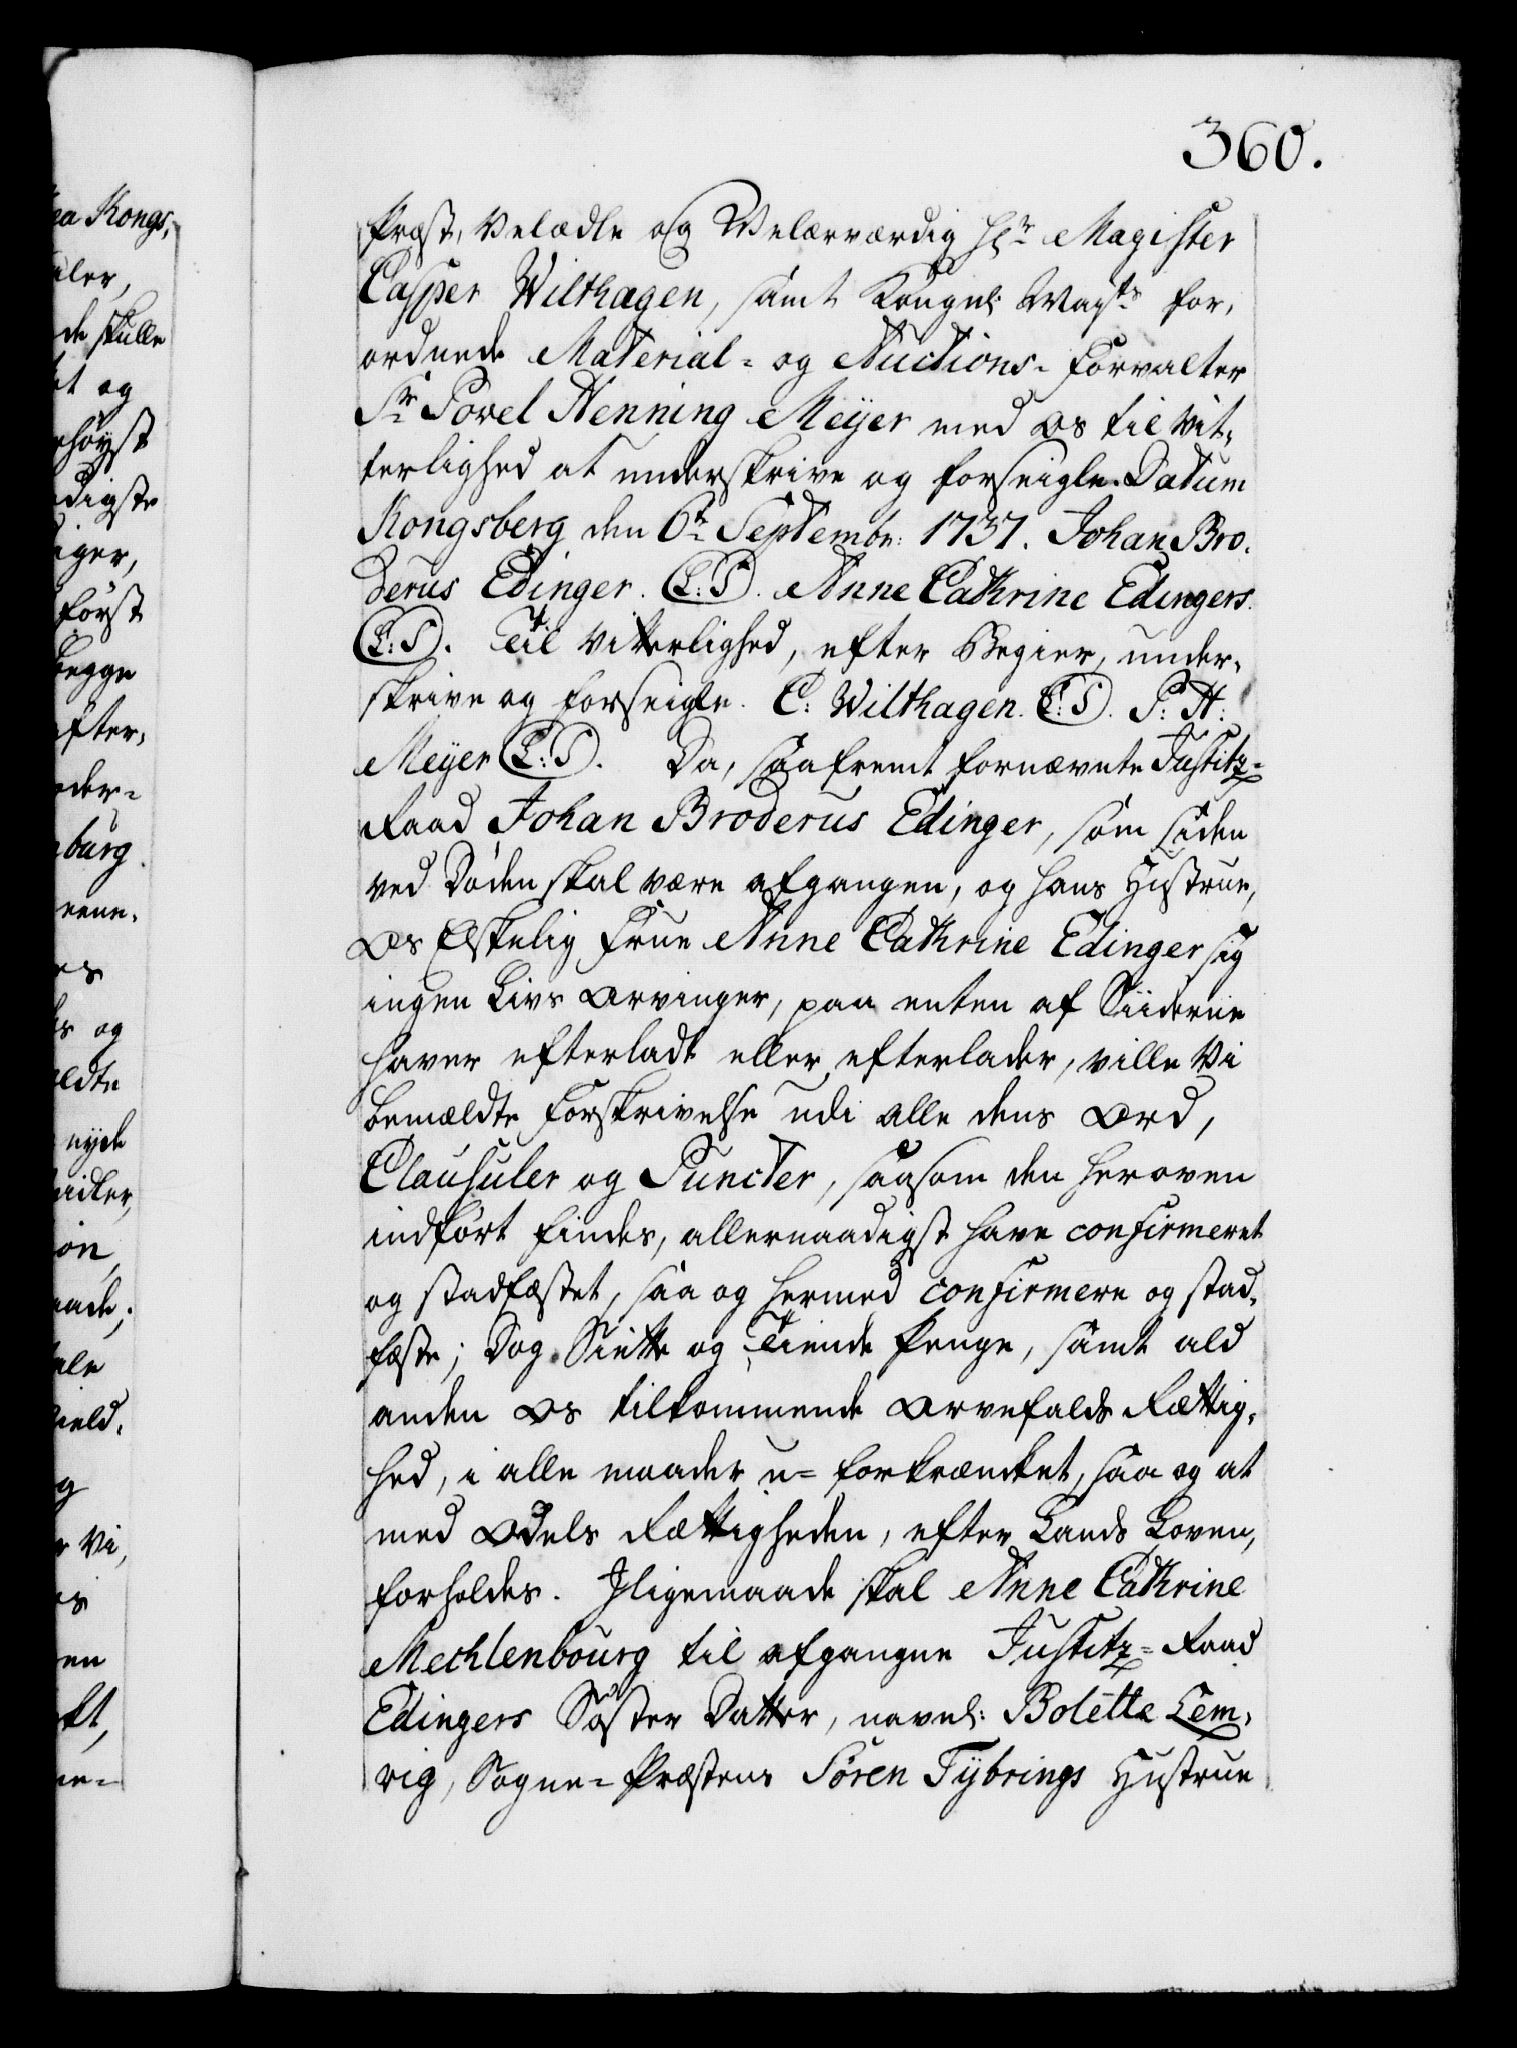 360.
Præst, Velædle og Velærværdig Hr. Magister
Casper Wilthagen, samt Kongel: Mayts for,
ordnede Material- og Auctions- Forvalter
Sr. Povel Henning Meyer med os til Vit,
terlighed at underskrive og forseigle. Datum
Kongsberg den 6te Septembr: 1737. Johan Bro,
derus Edinger. (L:S). Anne Cathrine Edingers.
(L:S). Til Vitterlighed, efter Begier, under,
skrive og forseigle. C: Wilthagen. (L:S). P: H:
Meyer (L:S). Da, saafremt fornævnte Justitz-
Raad Johan Broderus Edinger, som siden
ved Døden skal være afgangen, og hans Hustrue,
Os Elskelig Frue Anne Cathrine Edinger sig
ingen Livs Arvinger, paa enten af Siiderne
haver efterladt eller efterlader, ville Vi
bemældte Forskrivelse udi alle dens Ord,
Clausuler og Puncter, saasom den heroven
indført findes, allernaadigst have confirmeret
og stadfæstet, saa og hermed confirmere og stad,
fæste; Dog Siette og Tiende Penge, samt ald
anden Os tilkommende Arvefalds Rættig,
hed, i alle maader u-forkrencket, saa og at
med Odels Rættigheden, efter Lands Loven,
forholdes. Iligemaade skal Anne Cathrine
Mechlenbourg til afgangne Justitz-Raad
Edingers Søster Datter, navnl: Bolette Lem,
vig, Sogne-Præstens Søren Tybrings Hustrue
ea Kongs,
uler,
de skulle
et og
rhøyst
adigste
først
begge
efter,
burg
os og
ldte
nyde
aade;
g
r Vi,
en